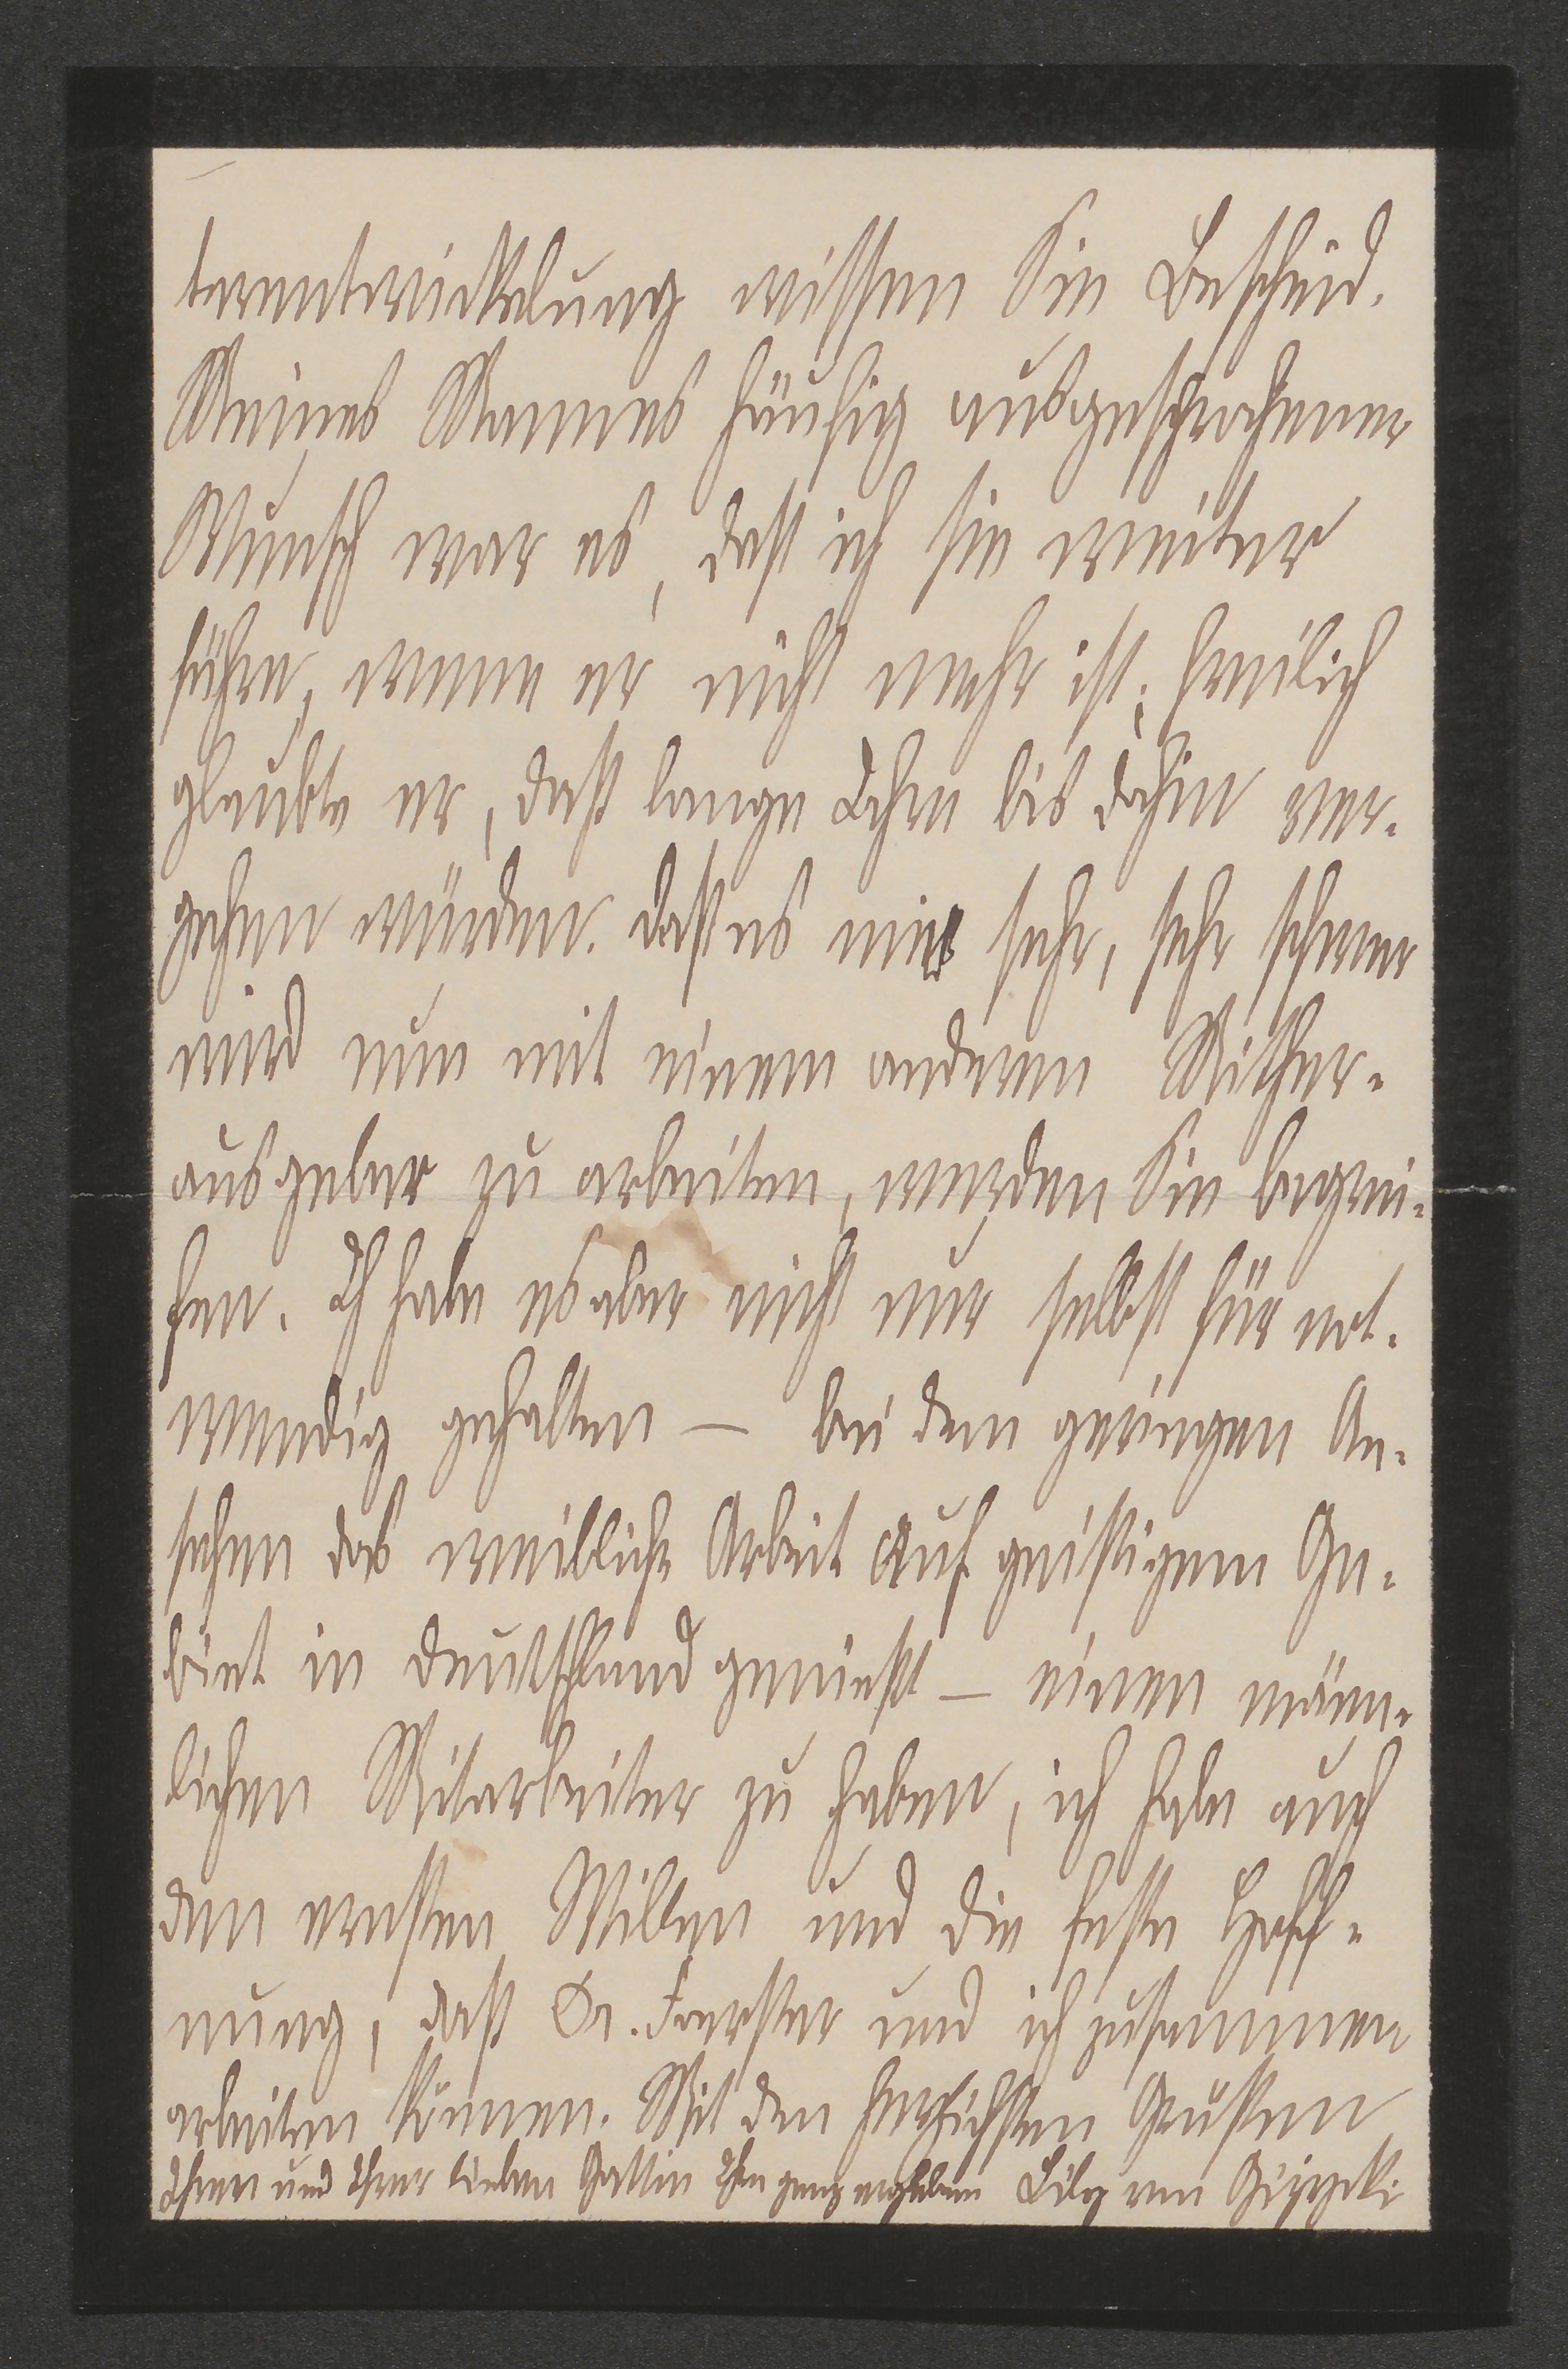 terentwickelung wissen Sie Bescheid.
Meines Mannes häufig ausgesprochener
Wunsch war es, daß ich sie weiter
führe, wenn er nicht mehr ist; freilich
glaubte er, daß lange Jahre bis dahin ver-
gehen würden. Daß es mir sehr, sehr schwer
wird nun mit einem anderen Mither-
ausgeber zu arbeiten, werden Sie begrei-
fen. Ich habe es aber nicht nur selbst für not-
wendig gehalten – bei dem geringen An-
sehen das weibliche Arbeit auf geistigem Ge-
biet in Deutschland genießt – einen männ-
lichen Mitarbeiter zu haben, ich habe auch
den ernsten Willen und die feste Hoff-
nung, daß Dr. Foerster und ich zusammen
arbeiten können. Mit den herzlichsten Grüßen
Ihnen und Ihrer lieben Gattin Ihre ganz ergebene Lily von Gizycki